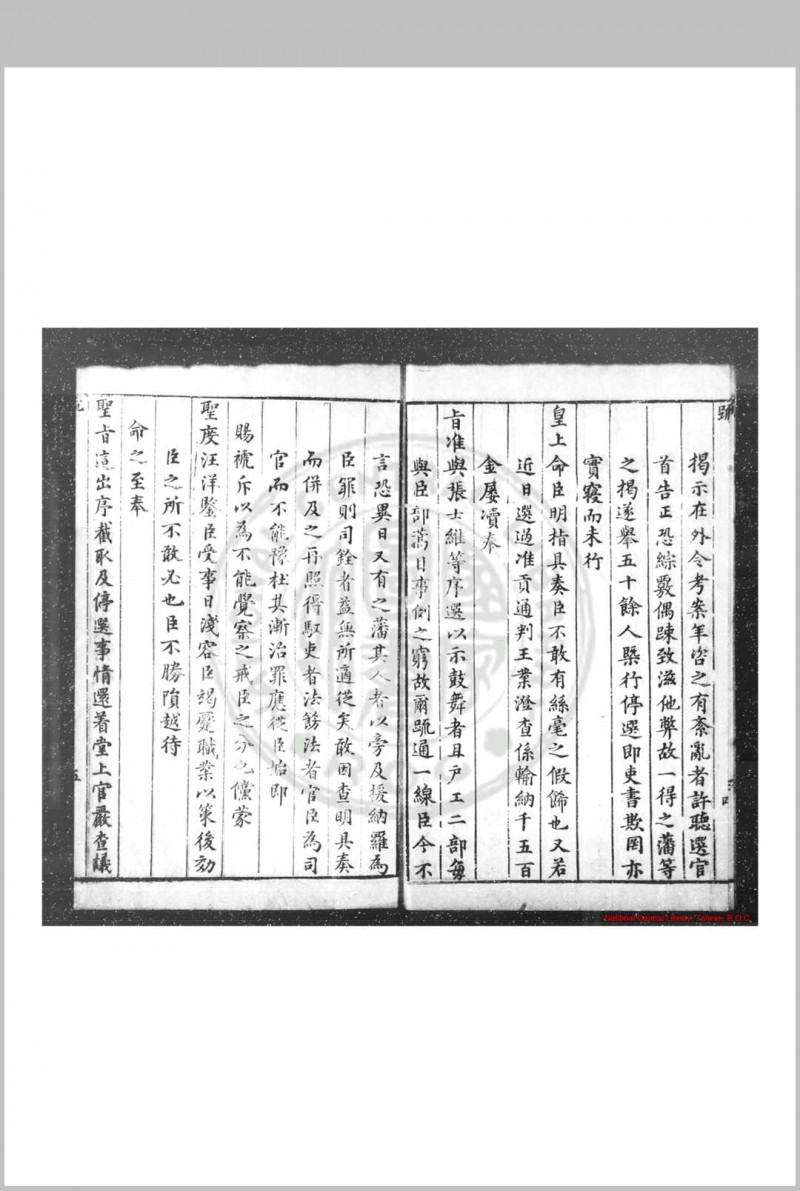 揭示在外令考案年咨之有紊亂者許聽選官
首告正恐綜覈偶踈致滋他弊故一得之藩等
之揭遂舉五十餘人槩行停選即吏書欺罔亦
實寢而未行
皇上命臣明指具奏臣不敢有絲毫之假餙也又若
近日選過准貢通判王業澄查係輸納千五百
金屢瀆奉
旨准與張士維等序選以示鼓舞者且戶工二部每
與臣部蒿目事例之窮故爾疏通一線臣今不
言恐異日又有之藩其人者以旁及援納羅為
臣罪則司銓者益無所適從矣敢因查明具奏
而併及之再照得馭吏者法餙法者官臣為司
官而不能豫杜其漸治罪應從臣始即
賜褫斥以為不能覺察之戒臣之分也儻蒙
聖度汪洋鑒臣受事日淺容臣竭蹷職業以策後効
臣之所不敢必也臣不勝隕越待
命之至奉
聖旨這出序截取及停選事情還着堂上官嚴查議
五
National Central Library, Taiwan, R.O.C